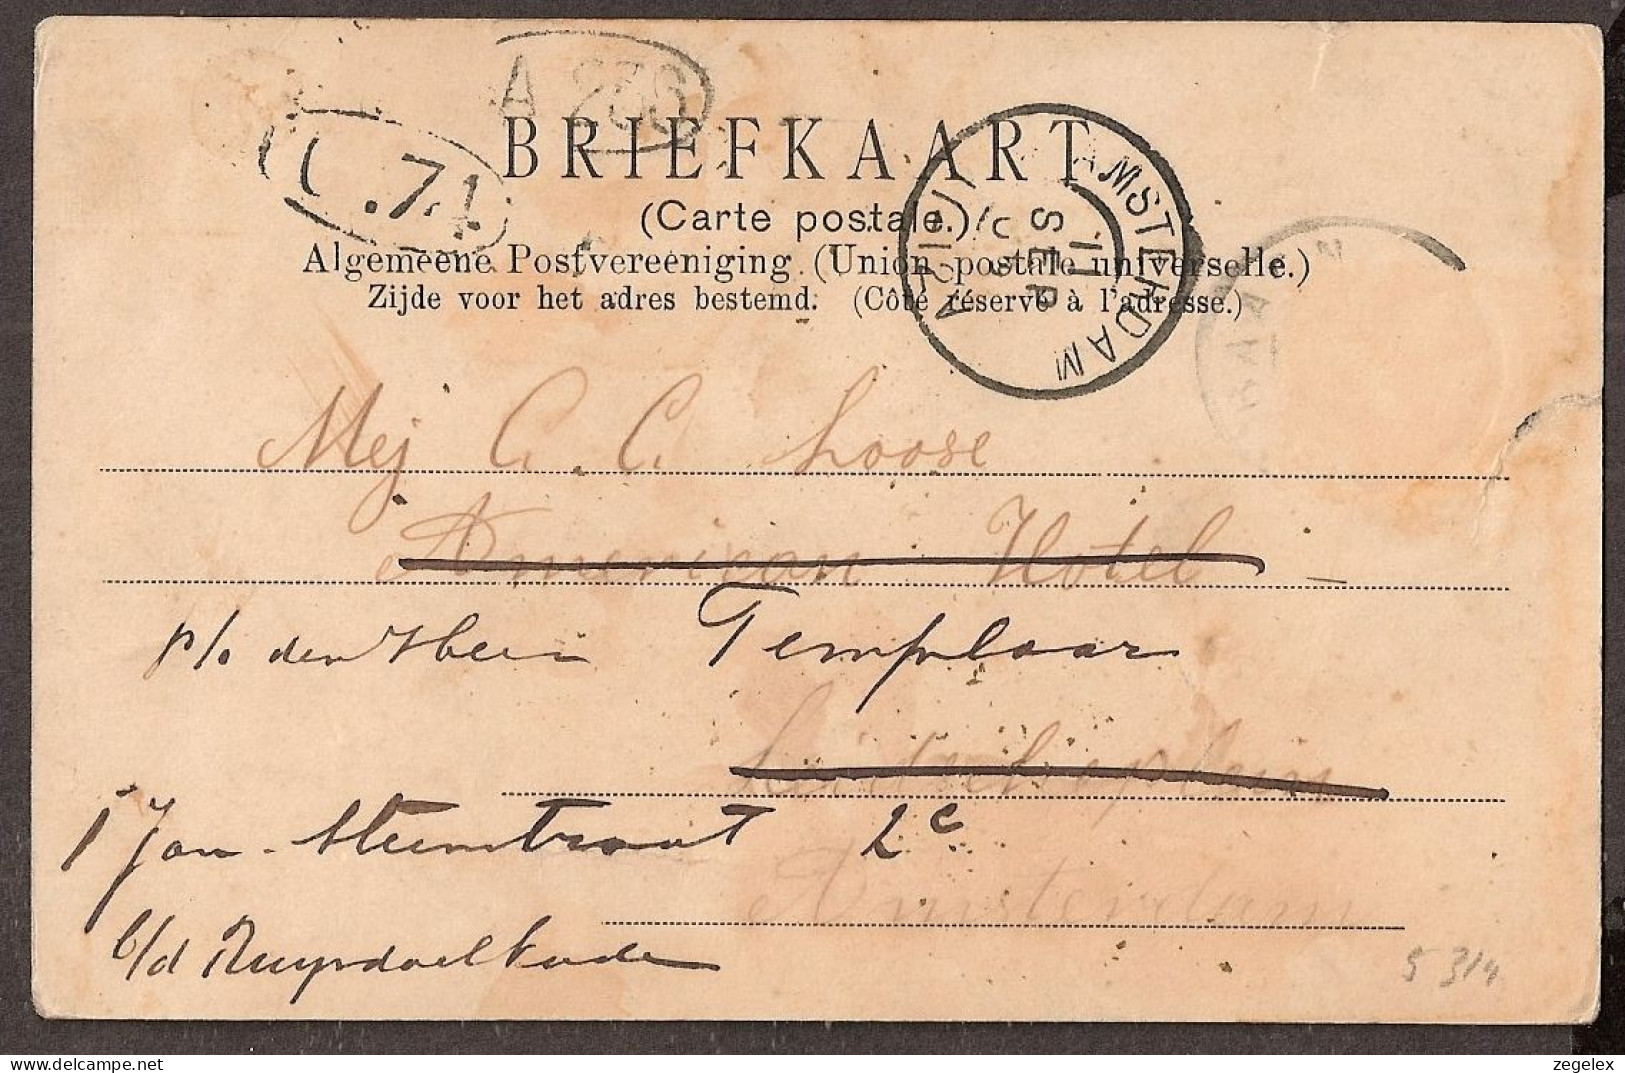 A 236
C.74
BRIEFKAART
(Carte postale.)
Algemeene Postvereeniging (Union postale universelle.)
Zijde voor het adres bestemd. (Côté réservé à l'adresse.)
AMSTERDAM
11 SEP
Mej C. C. Loose
American Hotel
p/o den Heer Templaar
Leidscheplein
Jan Steenstraat 2e
Amsterdam
b/d Ruysdaelkade
5 3/4
delcampe.net
zegelex